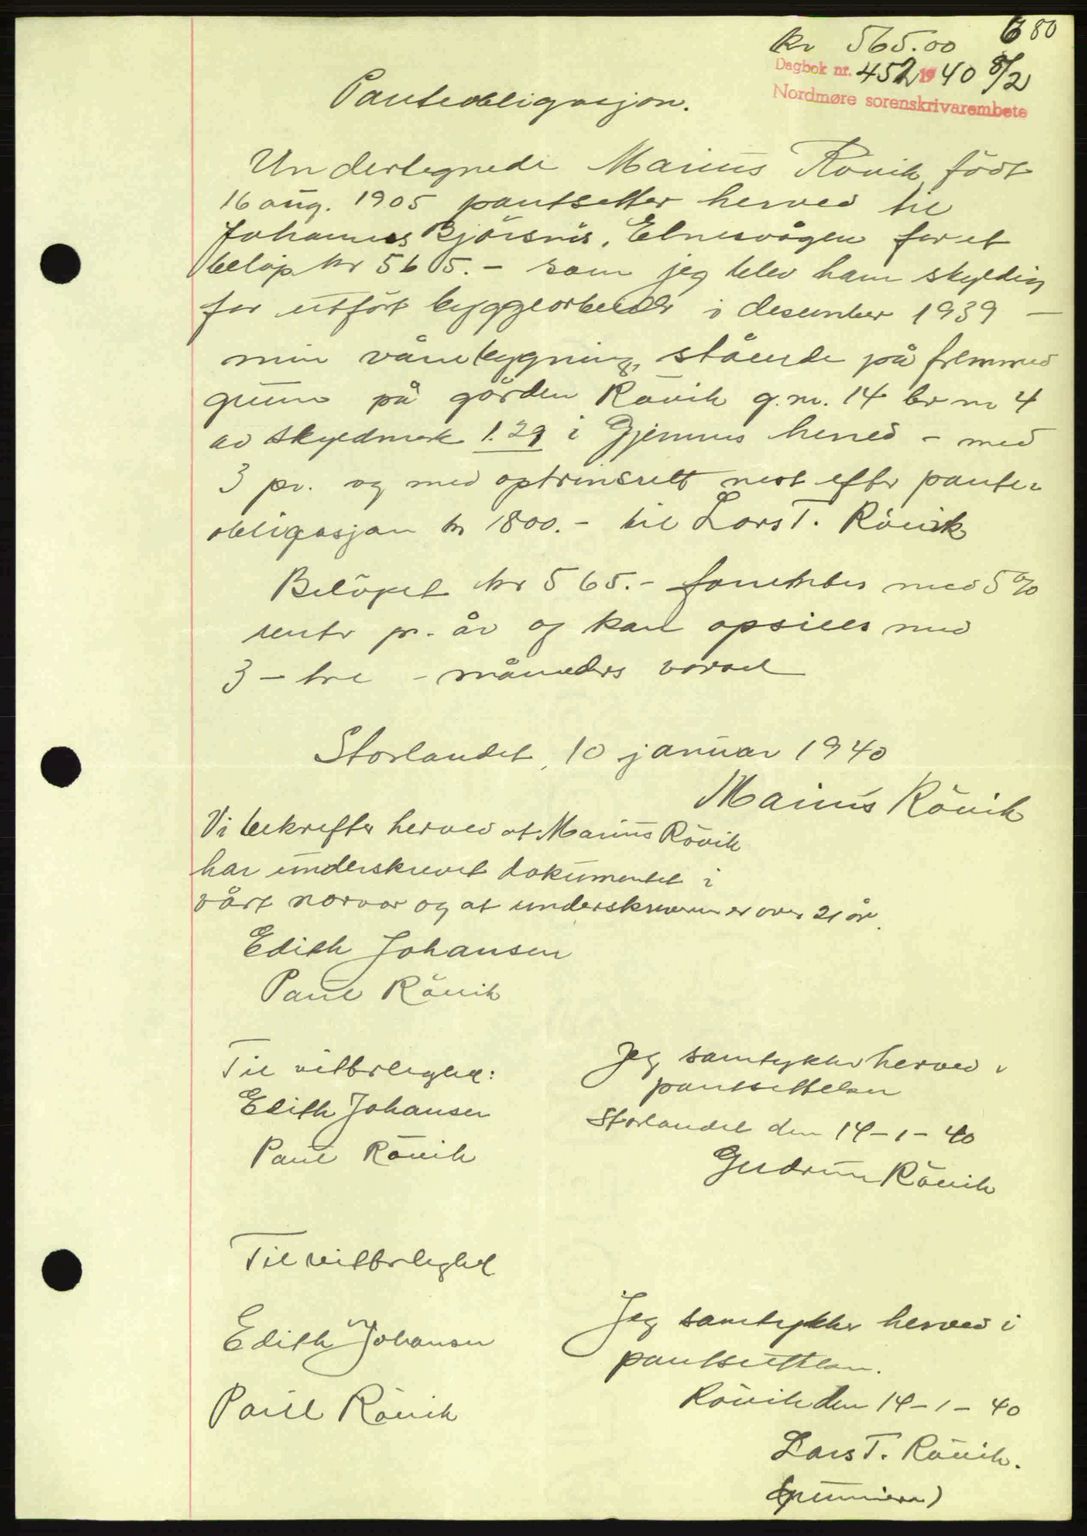 680
kr 565.00
Dagbok nr. 452 1940 8/2
Nordmøre sorenskrivarembete
Panteobligasjon.
Undertegnede Marius Rövik, födt
16 aug. 1905 pantsetter herved til
Johannes Björsnös, Elnesvågen for et
belöp kr 565.- som jeg blev ham skyldig
for utfört byggearbeide i desember 1939 -
min vånebygning, stående på fremmed
grunn på gården Rövik g.nr. 14 br nr 4
av skyldmark 1.29 i Gjemnes herred - med
3 pr. og med optrinsrett nest efter pante-
obligasjon kr 1800.- til Lars T. Rövik
Belöpet kr 565.- forrentes med 5%
rente pr. år og kan opsies med
3 - tre - måneders varsel
Storlandet, 10 januar 1940
Marius Rövik
Vi bekrefter herved at Marius Rövik
har underskrevet dokumentet i
vårt nærvær og at underskriveren er over 21 år.
Edith Johansen
Paul Rövik
Til vitterlighet:
Edith Johansen
Paul Rövik
Jeg samtykker herved i
pantsettelsen
Storlandet den 14-1-40
Gudrun Rövik
Til vitterlighet
Edith Johansen
Paul Rövik
Jeg samtykker herved i
pantsettelsen.
Rövik den 14-1-40
Lars T. Rövik.
(grunneier)